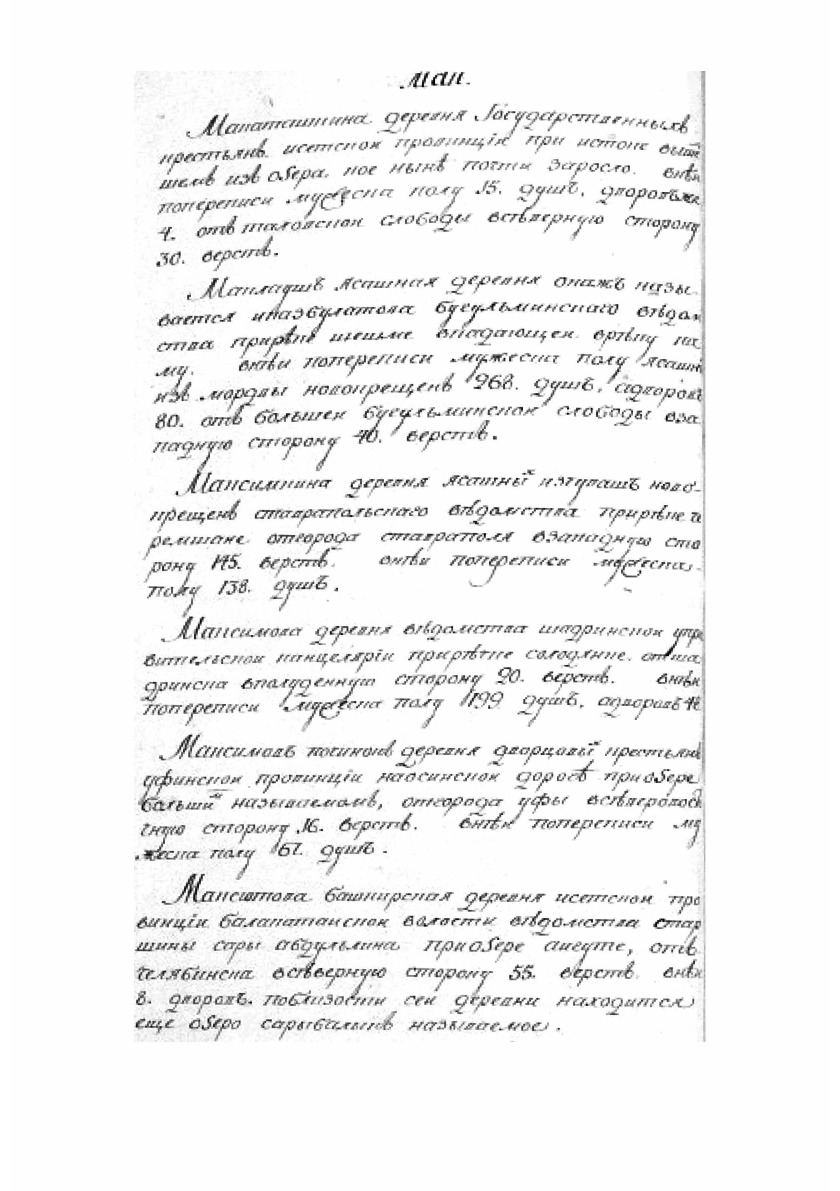 Мак.
Макаташкина деревня Государственныхъ
крестьянъ исетскои провинцїи при истоке вышѣ
шемъ изъ озера, кое нынѣ почти заросло. внѣи
попереписи мужеска полу 15. душъ, дворовъже
4. отъ таловскои слободы всѣверную сторону
30. верстъ.
Маклаушъ ясашная деревня онажъ назы
вается иназбулатова бугульминскаго вѣдом
ства прирѣке шешме впадающеи врѣку ка
му. внѣи попереписи мужеска полу ясашнь
изъ мордвы новокрещенъ 268. душъ, адворовъ
80. отъ большеи бугульминскои слободы вза
падную сторону 40. верстъ.
Максимкина деревня ясашныхъ изчувашъ ново-
крещенъ ставрапольскаго вѣдомства прирѣке че
ремшане отгорода ставраполя взападную сто
рону 145. верстъ. внѣи попереписи мужеска
полу 138. душъ.
Максимова деревня вѣдомства шадринскои упра
вительскои канцелярїи прирѣчке солодянке. отша
дринска вполуденную сторону 20. верстъ. внѣи
попереписи мужеска полу 199 душъ, адворовъ 48
Максимовъ починокъ деревня дворцовыхъ крестьянъ
уфинскои провинцїи наосинскои дорогѣ приозере
большимъ называемомъ, отгорода уфы всѣверовосто
чную сторону 16. верстъ. внѣи попереписи му
жеска полу 67. душъ.
Максютова башкирская деревня исетскои про
винцїи балакатаискои волости вѣдомства стар
шины сары абдульмина приозере аигуте, отъ
челябинска всѣверную сторону 55. верстъ внѣи
8. дворовъ. поблизости сеи деревни находится
еще озеро сарыбалыкъ называемое.